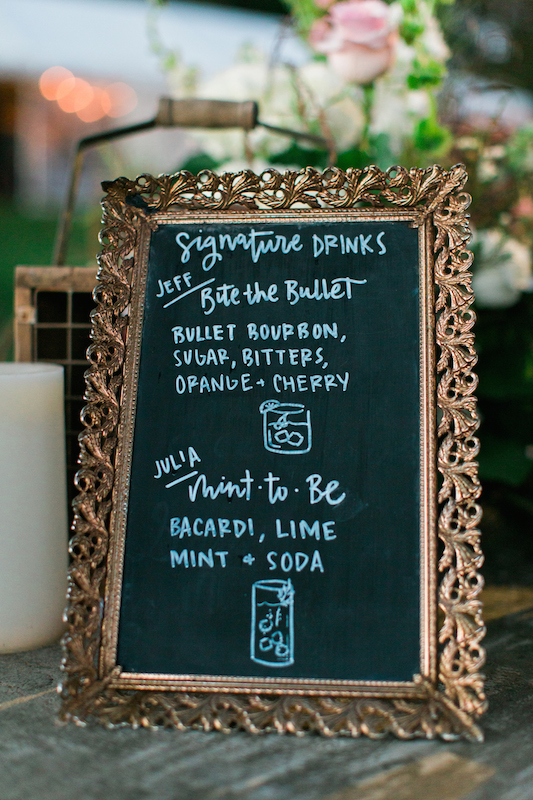 Signature DRINKS
JEFF
Bite the Bullet
BULLET BOURBON,
SUGAR, BITTERS,
ORANGE + CHERRY
JULIA
Mint·to·Be
BACARDI, LIME
MINT + SODA